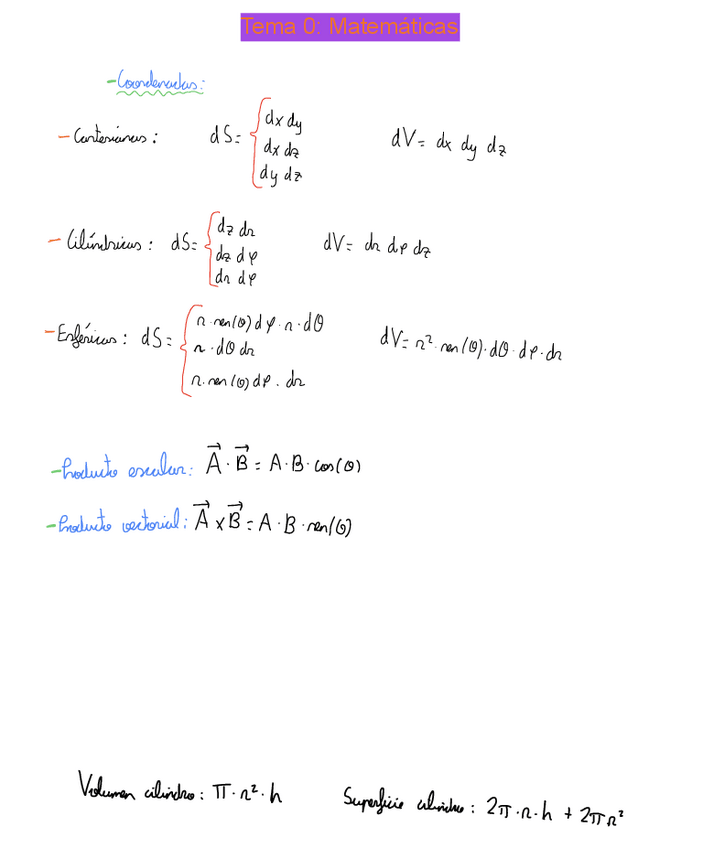 Tema 0: Matemáticas
- Coordenadas:
- Cartesianas: dS = { dx dy
dx dz
dy dz
dV = dx dy dz
- Cilíndricas: dS = { dz dr
dz dφ
dr dφ
dV = dr dφ dz
- Esféricas: dS = { r·sen(θ) dφ·r·dθ
r·dθ dr
r·sen(θ) dφ·dr
dV = r²·sen(θ)·dθ·dφ·dr
- Producto escalar: A⃗·B⃗ = A·B·cos(θ)
- Producto vectorial: A⃗ x B⃗ = A·B·sen(θ)
Volumen cilindro: π·r²·h
Superficie cilindro: 2π·r·h + 2πr²